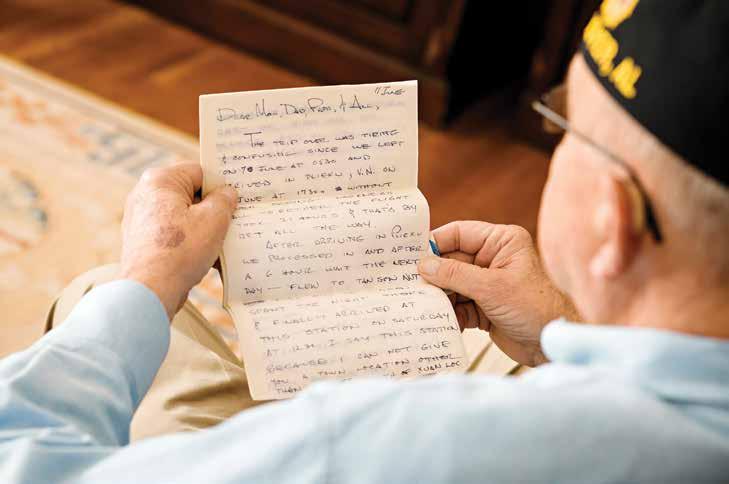 11 June
Dear Mom, Dad, & All,
The trip over was tiring
& confusing since we left
on 10 June at 0530 and
arrived in Pleiku, V.N. on
June at 1730. without
the flight
took 21 hours & that's by
jet all the way.
After arriving in Pleiku
we processed in and after
a 6 hour wait the next
day — flew to Tan Son Nut
spent the night there
& finally arrived at
this station on Saturday
at 12 M. I say this station
because I can not give
you a town location other
than Xuan Loc